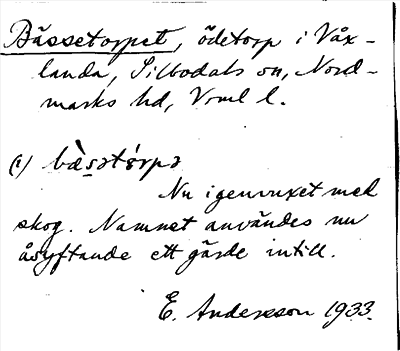 Bässetorpet, ödetorp i Våx-
landa, Silbodals sn, Nord-
marks hd, Vrml l.
(1) bæ̀sətórpə
Nu igenvuxet med
skog. Namnet användes nu
åsyftande ett gärde intill.
E. Andersson 1933.